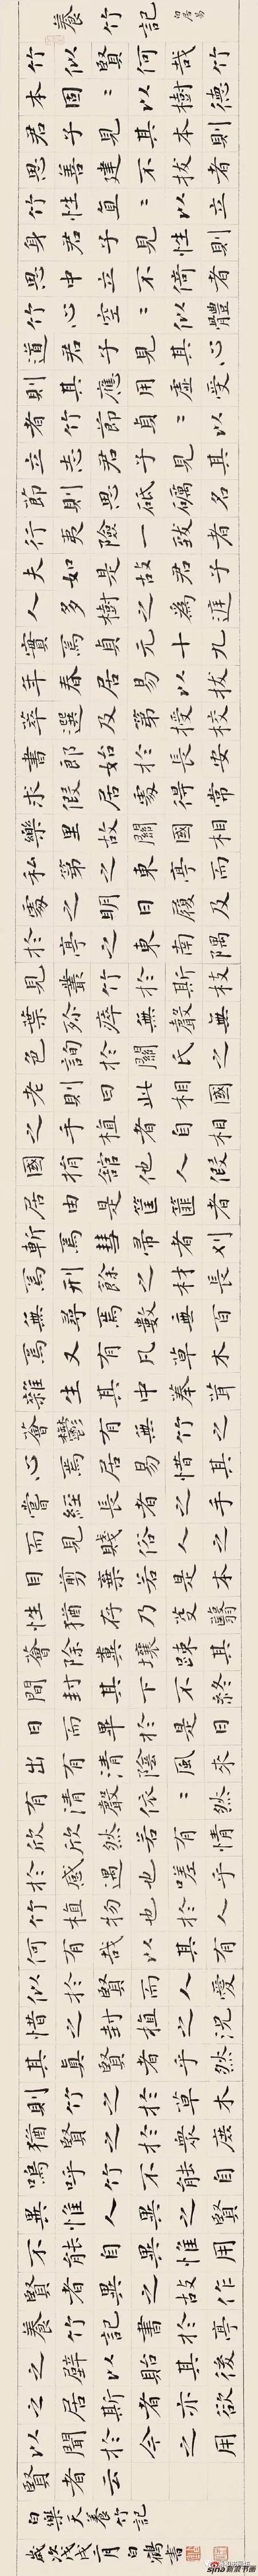 養竹記
白居易
竹似賢何哉竹
本固ゝ以樹德
君子見其本則
思善建不拔者
竹性直ゝ以立
身君子見性則
思中立不倚者
竹心空ゝ似體
道君子見其心
則其應用虛受
者竹節貞ゝ以
立志君子見其
節則思砥礪名
行夷險一致者
夫如是故君子
人多樹之為庭
實焉貞元十九
年春居易以拔
萃選及第授校
書郎始於長安
求假居處得常
樂里故關國相
私第之東亭而
處之明日履及
於亭之東南隅
見叢竹於斯枝
葉殄瘁無聲無
色詢於關氏之
老則曰此相國
之手植者自相
國捐館他人假
居由是筐篚者
斬焉彗帚者刈
焉刑餘之材長
無尋焉數無百
焉又有凡草木
雜生其中菶茸
薈鬱有無竹之
心焉居易惜其
嘗經長者之手
而見賤俗人之
目剪棄若是本
性猶存乃芟翳
薈除糞壤疎其
間封其下不終
日而畢於是日
出有清陰風來
有清聲依ゝ然
欣ゝ然若有情
於感遇也嗟乎
竹植物也於人
何有哉以其有
似於賢而人愛
惜之封植之況
其真賢者乎然
則竹之於草木
猶賢之於眾庶
嗚呼竹不能自
異惟人異之賢
不能自異惟用
賢者異之故作
養竹記書於亭
之壁以貽其後
之居斯者亦欲
以聞於今之用
賢者云
白樂天養竹記
歲次戊戌二月白鶴書
sina新浪书画